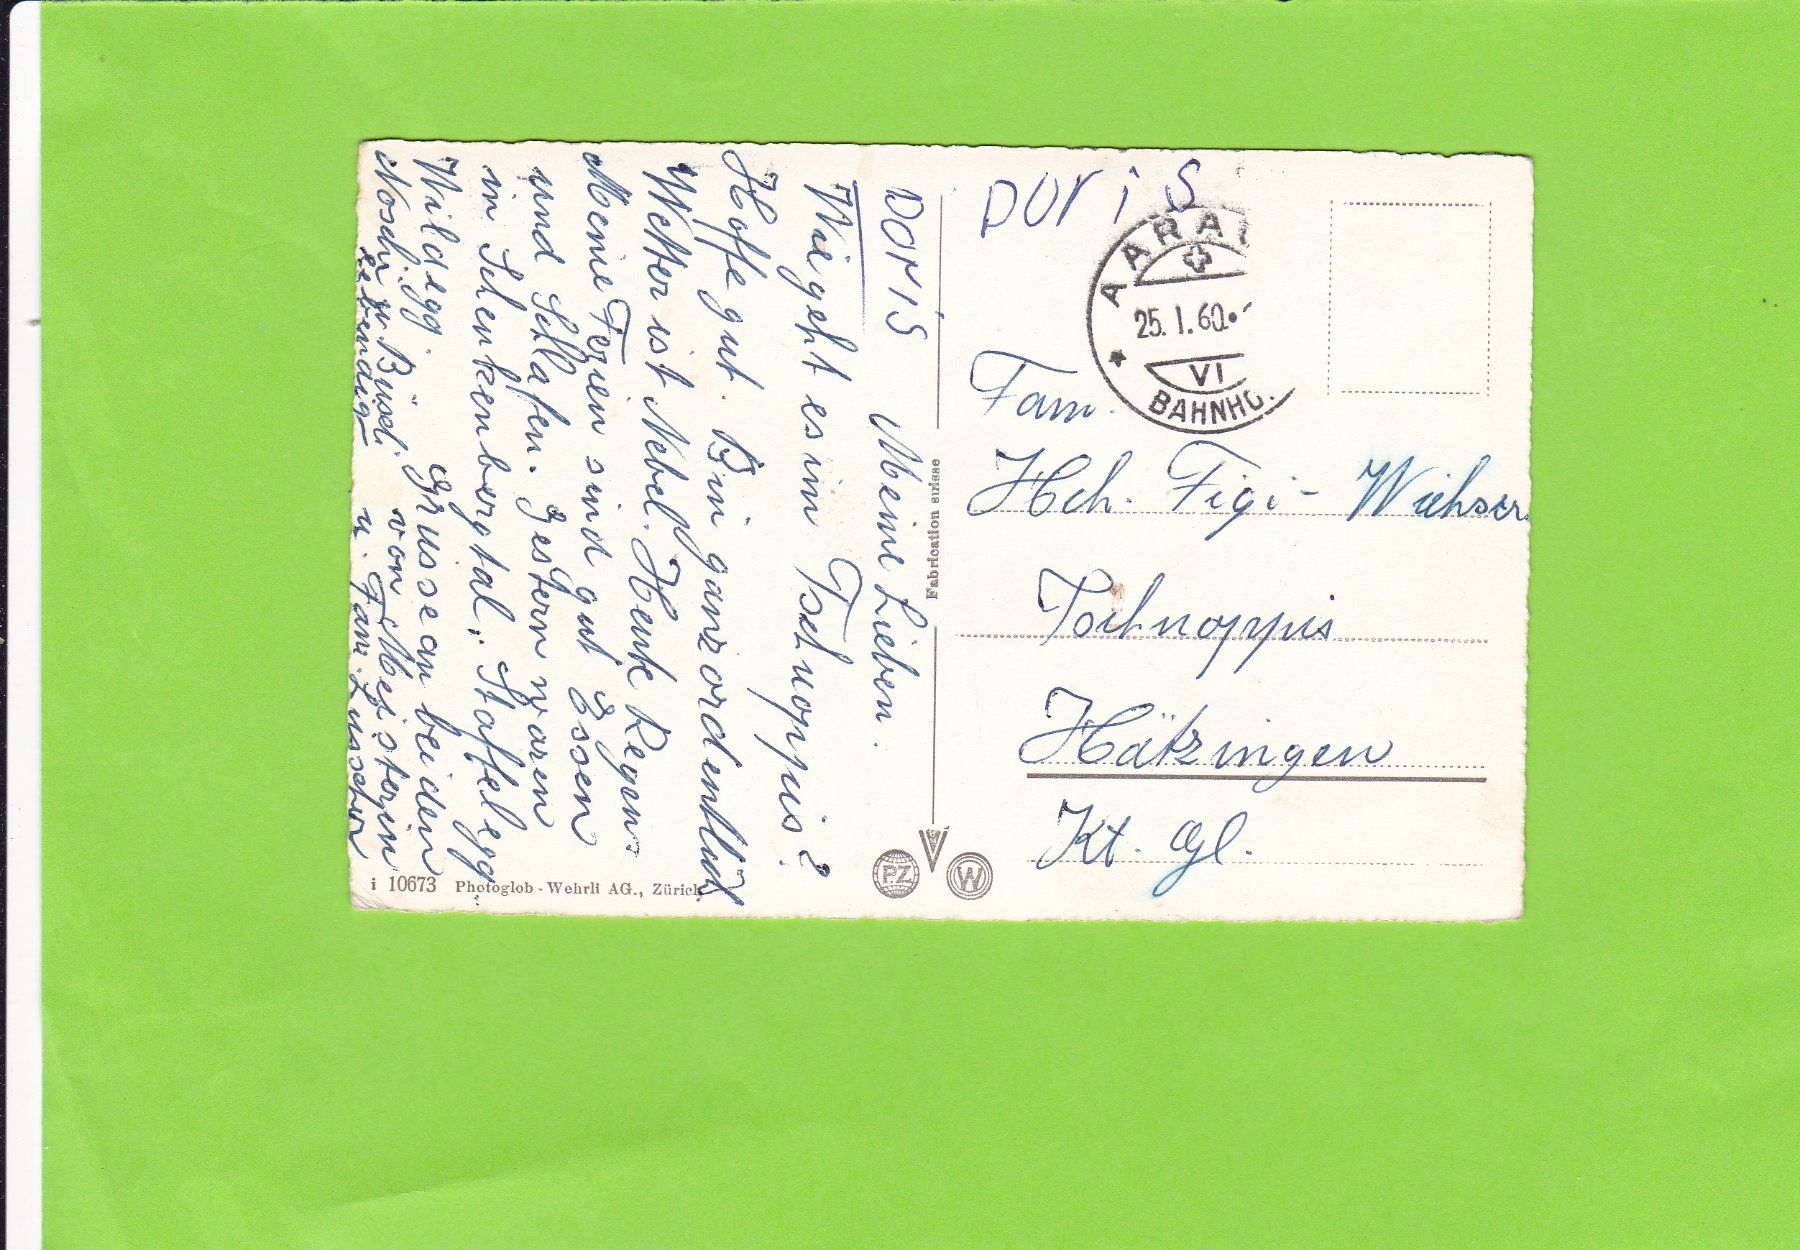 Doris
Meine Lieben.
Wie geht es im Tschoppis?
Hoffe gut. Bin ganz ordentlich
Wetter ist Nebel. Heute Regen
Meine Ferien sind gut Essen
und Schlafen. Gestern waren
in Schenkenbergtal: Staffelegg
Wildegg. Grüsse an beiden
Noschi zu Büseli. von Meisterin
u. Fam. Lüscher
Fabrication suisse
i 10673 Photoglob - Wehrli AG., Zürich
PZ
W
Doris
AARA
25. 1. 60
VI
BAHNHO
Fam.
Hch. Figi - Wichser
Tschnoppis
Hätzingen
Kt. Gl.